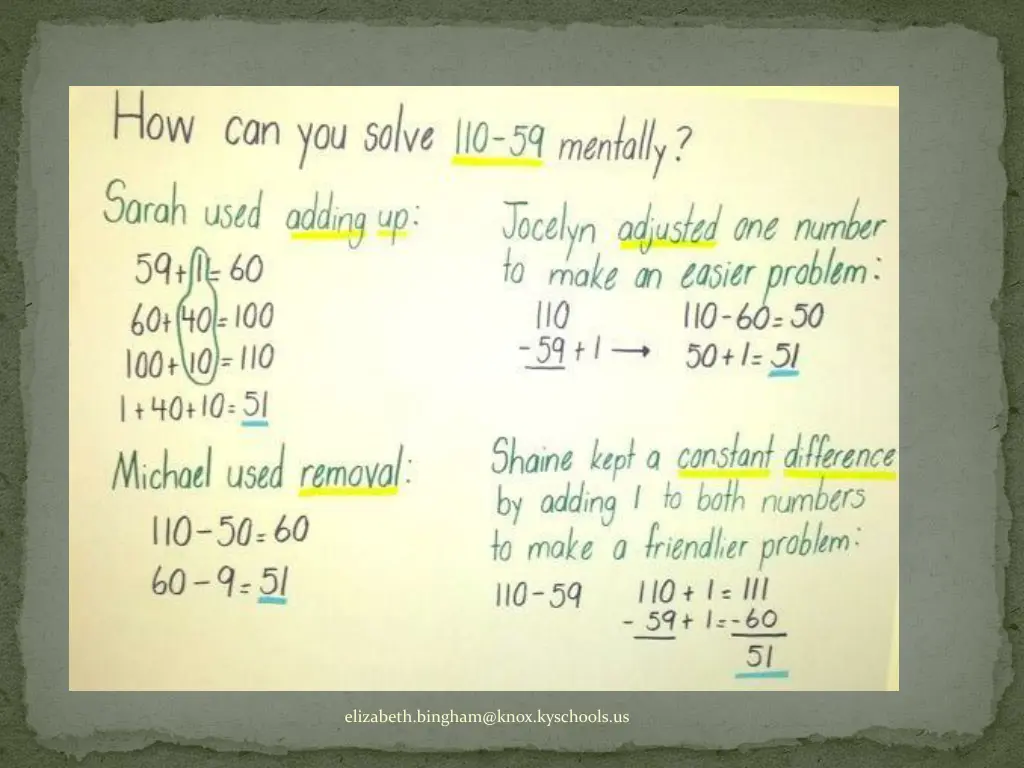 How can you solve 110-59 mentally?
Sarah used adding up:
59+1=60
60+40=100
100+10=110
1+40+10=51
Jocelyn adjusted one number
to make an easier problem:
110
-59+1→
110-60=50
50+1=51
Michael used removal:
110-50=60
60-9=51
Shaine kept a constant difference
by adding 1 to both numbers
to make a friendlier problem:
110-59
110+1=111
-59+1=-60
51
elizabeth.bingham@knox.kyschools.us